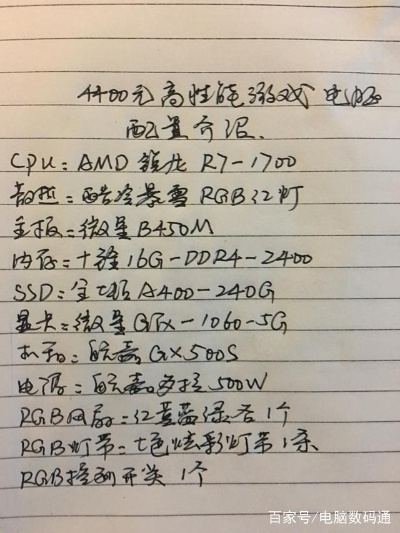 4400元高性能游戏电脑
配置介绍.
CPU:AMD 锐龙 R7-1700
散热:酷冷暴雪RGB幻灯
主板:微星B450M
内存:十铨16G-DDR4-2400
SSD:金士顿A400-240G
显卡:微星GTX-1060-5G
机箱:航嘉GX500S
电源:航嘉多核500W
RGB风扇:红黄蓝绿各1个
RGB灯带:七色炫彩灯带1条
RGB控制开关 1个
百家号/电脑数码通